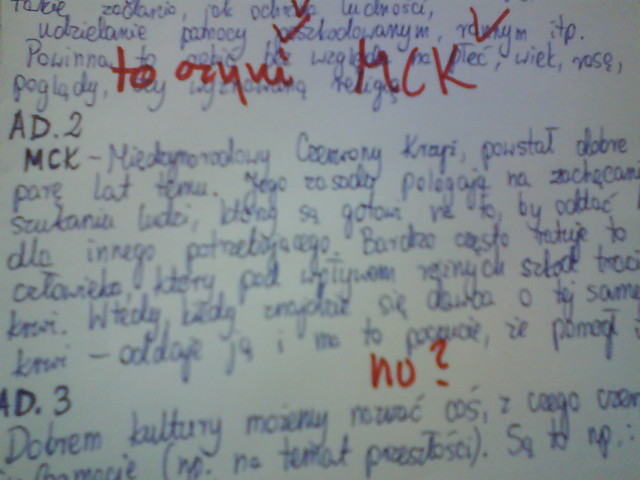 takie zadania, jak ochrona ludności,
udzielanie pomocy poszkodowanym, rannym itp.
Powinna to robić bez względu na płeć, wiek, rasę,
to czyni MCK
poglądy, czy wyznawaną religię
AD. 2
MCK - Międzynarodowy Czerwony Krzyż, powstał dobre
parę lat temu. Jego zasady polegają na zachęcaniu
szukaniu ludzi, którzy są gotowi na to, by oddać
dla innego potrzebującego. Bardzo często ratuje to
człowieka, który pod wpływem różnych szkód traci
krwi. Wtedy kiedy znajdzie się dawca o tej samej
krwi - oddaje ją i ma to poczucie, że pomógł
no?
AD. 3
Dobrem kultury możemy nazwać coś, z czego
(np. na temat przeszłości). Są to np.: